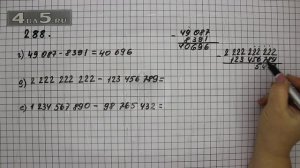 288.
г) 49 087 - 8 391 = 40 696
д) 2 222 222 222 - 123 456 789 =
е) 1 234 567 890 - 98 765 432 =
- 49 087
8 391
40 696
- 2 222 222 222
123 456 789